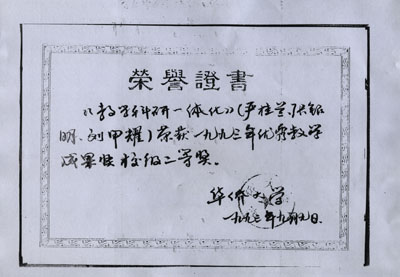 榮譽證書
《教学科研一体化》(严桂兰、张银
明、刘甲耀)荣获一九九三年优秀教学
成果 校级二等奖。
华侨大学
一九九三年九月九日.